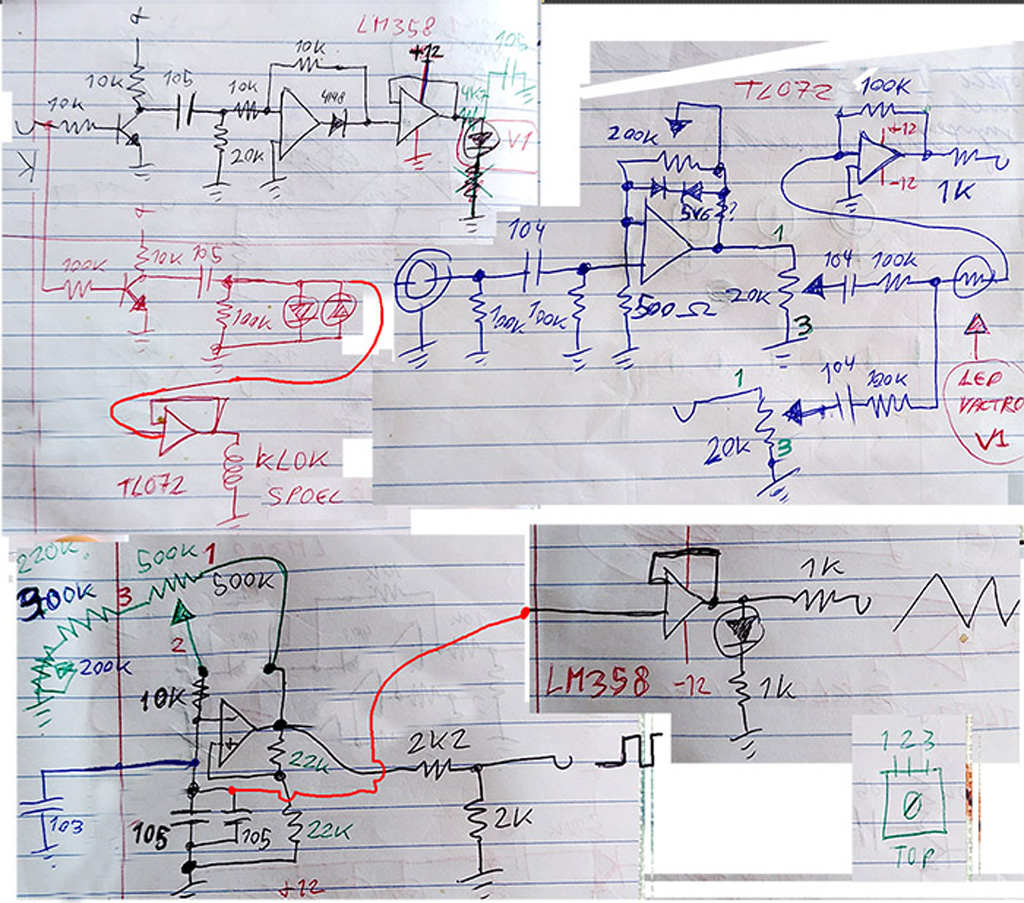 LM358
10K
+12
105
10K
105
10K
4K7
10K
4148
V1
20K
K
10K
105
100K
100K
TL072
KLOK
SPOEL
TL072
100K
200K
+12
-12
1K
5V6
?
104
1
104
100K
100K
100K
500Ω
20K
3
1
104
120K
LED
VACTRO
V1
20K
3
220K
500K
1
500K
300K
3
2
200K
10K
22K
2K2
103
105
105
22K
2K
+12
1K
LM358
-12
1K
1 2 3
TOP